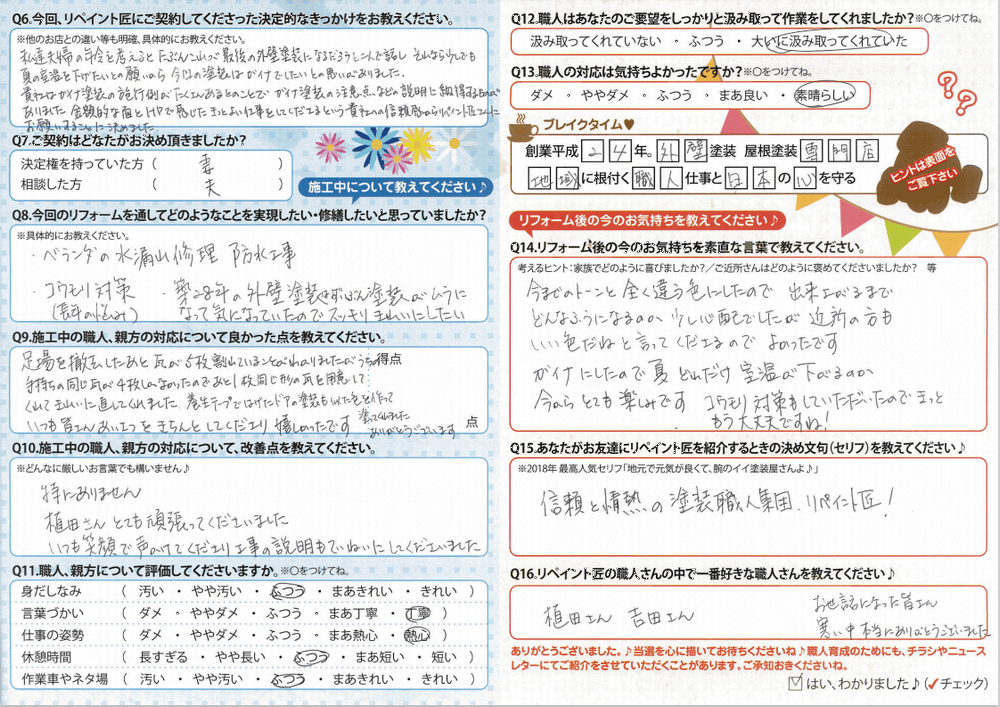 Q6.今回、リペイント匠にご契約してくださった決定的なきっかけをお教えください。
※他のお店との違い等も明確、具体的にお教えください。
私達夫婦の年令を考えると たぶんこれが最後の外壁塗装になるだろうと二人で話し それなら少しでも
夏の室温を下げたいとの願いから 今回の塗装はガイナでしたいとの思いがありました。
貴社はガイナ塗装の施行例がたくさんあるとのことで ガイナ塗装の注意点などの説明に納得するものが
ありました 金額的な面とHPで感じたきっとよい仕事をしてくださるという貴社への信頼感からリペイント匠さんに
お願いすることに決めました。
Q7.ご契約はどなたがお決め頂きましたか?
決定権を持っていた方 ( 妻 )
相談した方 ( 夫 )
施工中について教えてください♪
Q8.今回のリフォームを通してどのようなことを実現したい・修繕したいと思っていましたか?
※具体的にお教えください。
・ベランダの水漏れ修理 防水工事
・コウモリ対策 ・築28年の外壁塗装せずいぶん塗装がムラに
(長年の悩み) なって気になっていたのでスッキリきれいにしたい
Q9.施工中の職人、親方の対応について良かった点を教えてください。
足場を撤去したあと 瓦が5枚割れていることがわかりましたがうちの得点
手持ちの同じ瓦が4枚しかなかったのであと1枚同じ形の瓦を用意して
くれてきれいに直してくれました。養生テープではげたドアの塗装も似た色を作って
いつも皆さんあいさつをきちんとしてくださり嬉しかったです 塗ってくれました
ありがとうございます 点
Q10.施工中の職人、親方の対応について、改善点を教えてください。
※どんなに厳しいお言葉でも構いません♪
特にありません
植田さん とても頑張ってくださいました
いつも笑顔で声かけてくださり工事の説明もていねいにしてくださいました
Q11.職人、親方について評価してくださいますか。※○をつけてね。
身だしなみ ( 汚い ・ やや汚い ・ ふつう ・ まあきれい ・ きれい )
言葉づかい ( ダメ ・ ややダメ ・ ふつう ・ まあ丁寧 ・ 丁寧 )
仕事の姿勢 ( ダメ ・ ややダメ ・ ふつう ・ まあ熱心 ・ 熱心 )
休憩時間 ( 長すぎる ・ やや長い ・ ふつう ・ まあ短い ・ 短い )
作業車やネタ場 ( 汚い ・ やや汚い ・ ふつう ・ まあきれい ・ きれい )
Q12.職人はあなたのご要望をしっかりと汲み取って作業をしてくれましたか?※○をつけてね。
汲み取ってくれていない ・ ふつう ・ 大いに汲み取ってくれていた
Q13.職人の対応は気持ちよかったですか?※○をつけてね。
ダメ ・ ややダメ ・ ふつう ・ まあ良い ・ 素晴らしい
ブレイクタイム♥
創業平成24年。外壁塗装 屋根塗装専門店
地域に根付く職人仕事と日本の心を守る
ヒントは表面を
ご覧下さい
リフォーム後の今のお気持ちを教えてください♪
Q14.リフォーム後の今のお気持ちを素直な言葉で教えてください。
考えるヒント:家族でどのように喜びましたか?/ご近所さんはどのように褒めてくださいましたか? 等
今までのトーンと全く違う色にしたので 出来上がるまで
どんなふうになるのか 少し心配でしたが 近所の方も
いい色だねと言ってくださるので よかったです
ガイナにしたので 夏 どれだけ 室温が下がるのか
今から とても楽しみです コウモリ対策もしていただいたのできっと
もう大丈夫ですね!
Q15.あなたがお友達にリペイント匠を紹介するときの決め文句(セリフ)を教えてください♪
※2018年 最高人気セリフ「地元で元気が良くて、腕のイイ塗装屋さんよ♪」
信頼と情熱の塗装職人集団、リペイント匠!
Q16.リペイント匠の職人さんの中で一番好きな職人さんを教えてください♪
植田さん 吉田さん お世話になった皆さん
寒い中本当にありがとうございました
ありがとうございました。♪当選を心に描いてお待ちくださいね♪職人育成のためにも、チラシやニュース
レターにてご紹介をさせていただくことがあります。ご承知おきくださいね。
☑はい、わかりました♪(✓チェック)